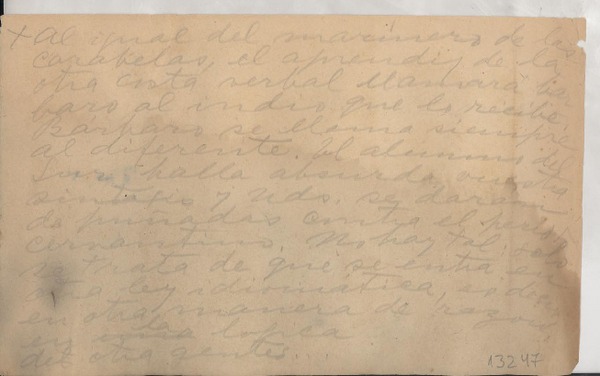 + Al igual del marinero de las
carabelas, el aprendiz de la
otra costa verbal llamará bár
baro al indio que lo recibe.
Bárbaro se llama siempre
al diferente. El alumno del
Sur halla absurda vuestra
sintaxis y Uds. se darán
de puñadas contra el período
cervantino. No hay tal, solo
se trata de que se entra en
otra ley idiomática, es decir
en otra manera de razon.
en la lógica
de otra gentes...
13247